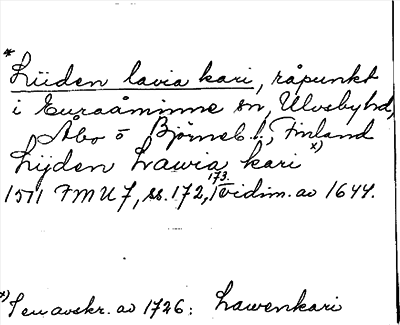 * Liiden lavia kari, råpunkt
i Euraåminne sn, Ulvsby hd,
Åbo o Björneb. l., Finland
Lijden Lawia kari x)
1511 FMU 7, ss. 172, 173. i vidim. av 1644.
x) I en avskr. av 1726: Lawenkari